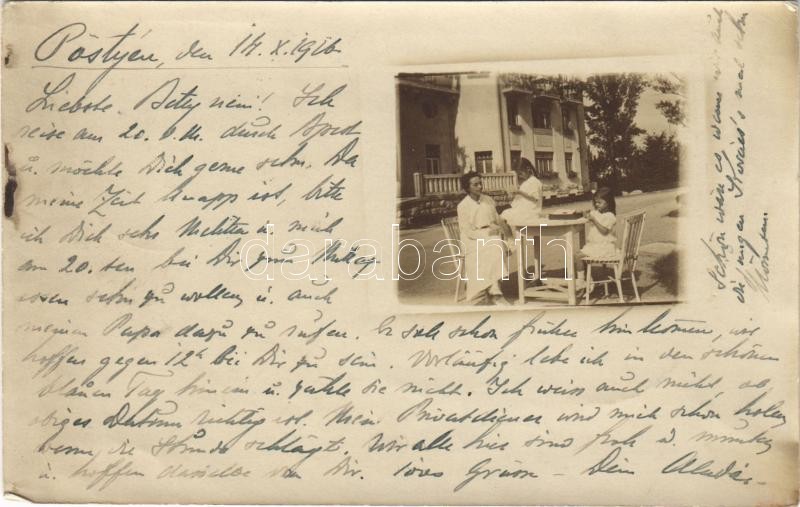 Pöstyén, den 14. X. 1916
Liebste Betty mein! Ich
reise am 20. d. M. durch Bpest
u. möchte Dich gerne sehn. Da
meine Zeit knapp ist, bitte
ich Dich sehr Nichten u. mich
am 20. ten bei Dir zum Mittag
essen sehn zu wollen u. auch
meinen Papa dazu zu rufen. Er soll schon früher hinkommen, wir
hoffen gegen 12h bei Dir zu sein. Vorläufig lebe ich in den schönen
blauen Tag hinein u. zähle sie nicht. Ich weiss auch nicht, ob
obiges Datum richtig ist. Mein Privatdiener wird mich schon holen
wenn die Stunde schlägt. Wir alle hier sind froh u. munter
u. hoffen dasselbe von Dir. 1000 Grüsse - Dein Aladár.
Schön wär es wenn wir auch
die jungen mal sehn
könnten.
darabanth